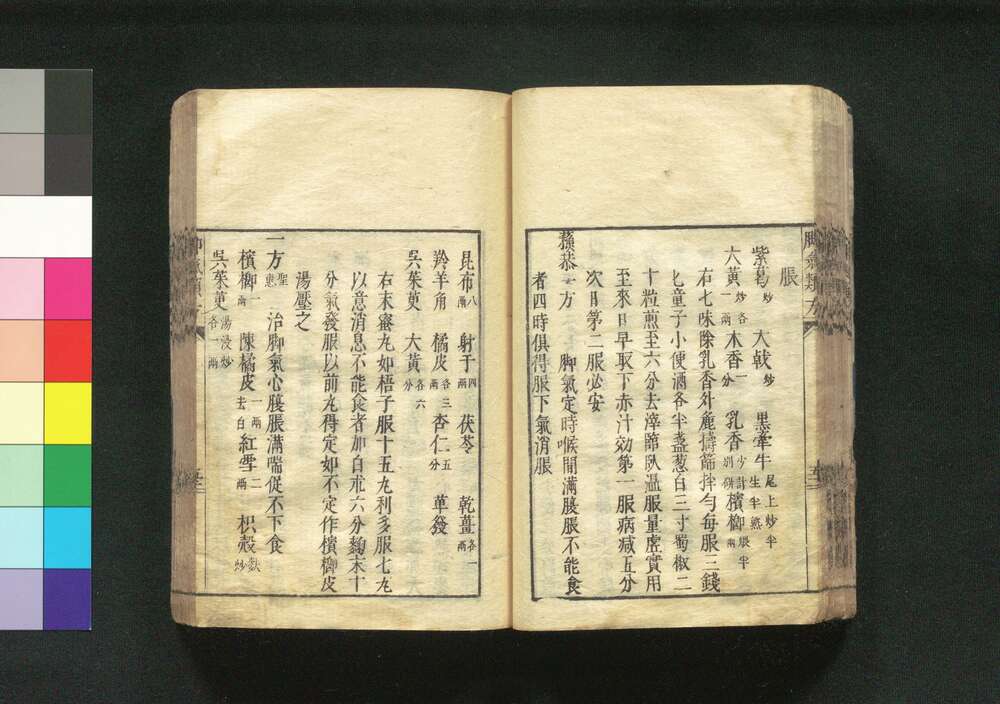 脹
紫葛炒 大戟炒 黒牽牛尾上炒半生半熟
大黃炒各一兩 木香一分 乳香別研 檳榔
右七味除乳香外麄擣篩拌勻每服三錢
匕童子小便酒各半盞葱白三寸蜀椒二
十粒煎至六分去滓臨臥温服量虛實用
至來日早取下赤汁効第一服病减五分
次日第二服必安
蘇恭一方 脚氣定時候間滿腹脹不能食
者四時俱得服下氣消脹
昆布八兩 射于四兩 茯苓 乾薑各一兩
羚羊角 橘皮各三兩 杏仁五分 蓽發
呉茱萸 大黃各六分
右末蜜丸如梧子服十五丸利多服七丸
以意消息不能食者加白朮六分麴末十
分氣發服以前丸得定如不定作檳榔皮
湯壓之
一方聖惠 治脚氣心腹脹滿喘促不下食
檳榔一兩 陳橘皮一兩去白 紅雪二兩 枳殼麩炒
呉茱萸湯浸炒各一兩